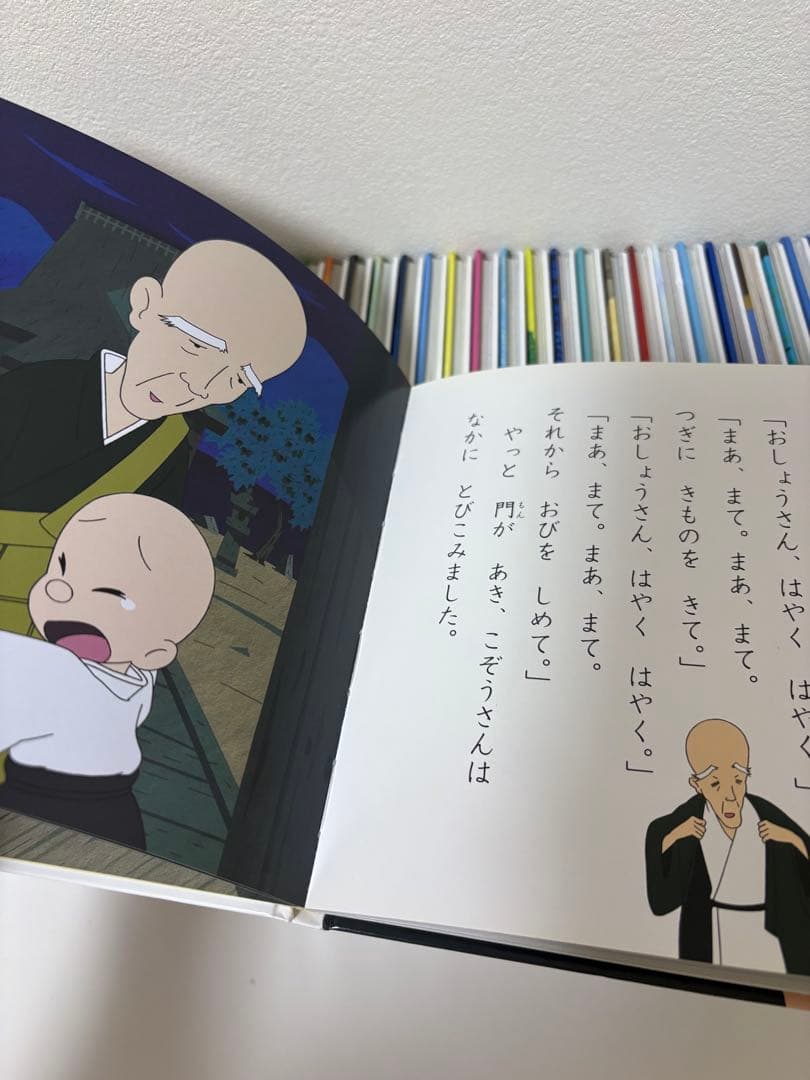 「おしょうさん、はやく はやく」
「まあ、まて。まあ、まて。
つぎに きものを きて。」
「おしょうさん、はやく はやく。」
「まあ、まて。まあ、まて。
それから おびを しめて。」
やっと 門が あき、こぞうさんは
もん
なかに とびこみました。